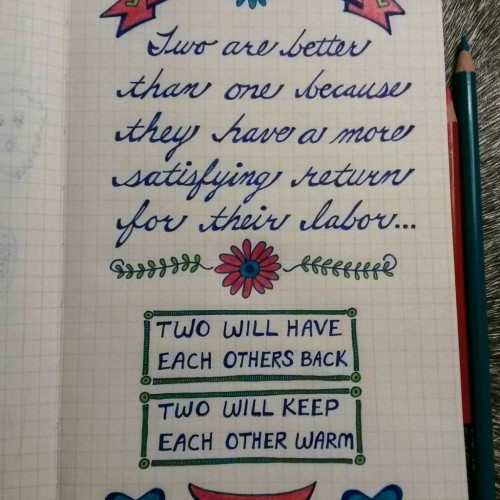 Two are better
than one because
they have a more
satisfying return
for their labor...
TWO WILL HAVE
EACH OTHERS BACK
TWO WILL KEEP
EACH OTHER WARM